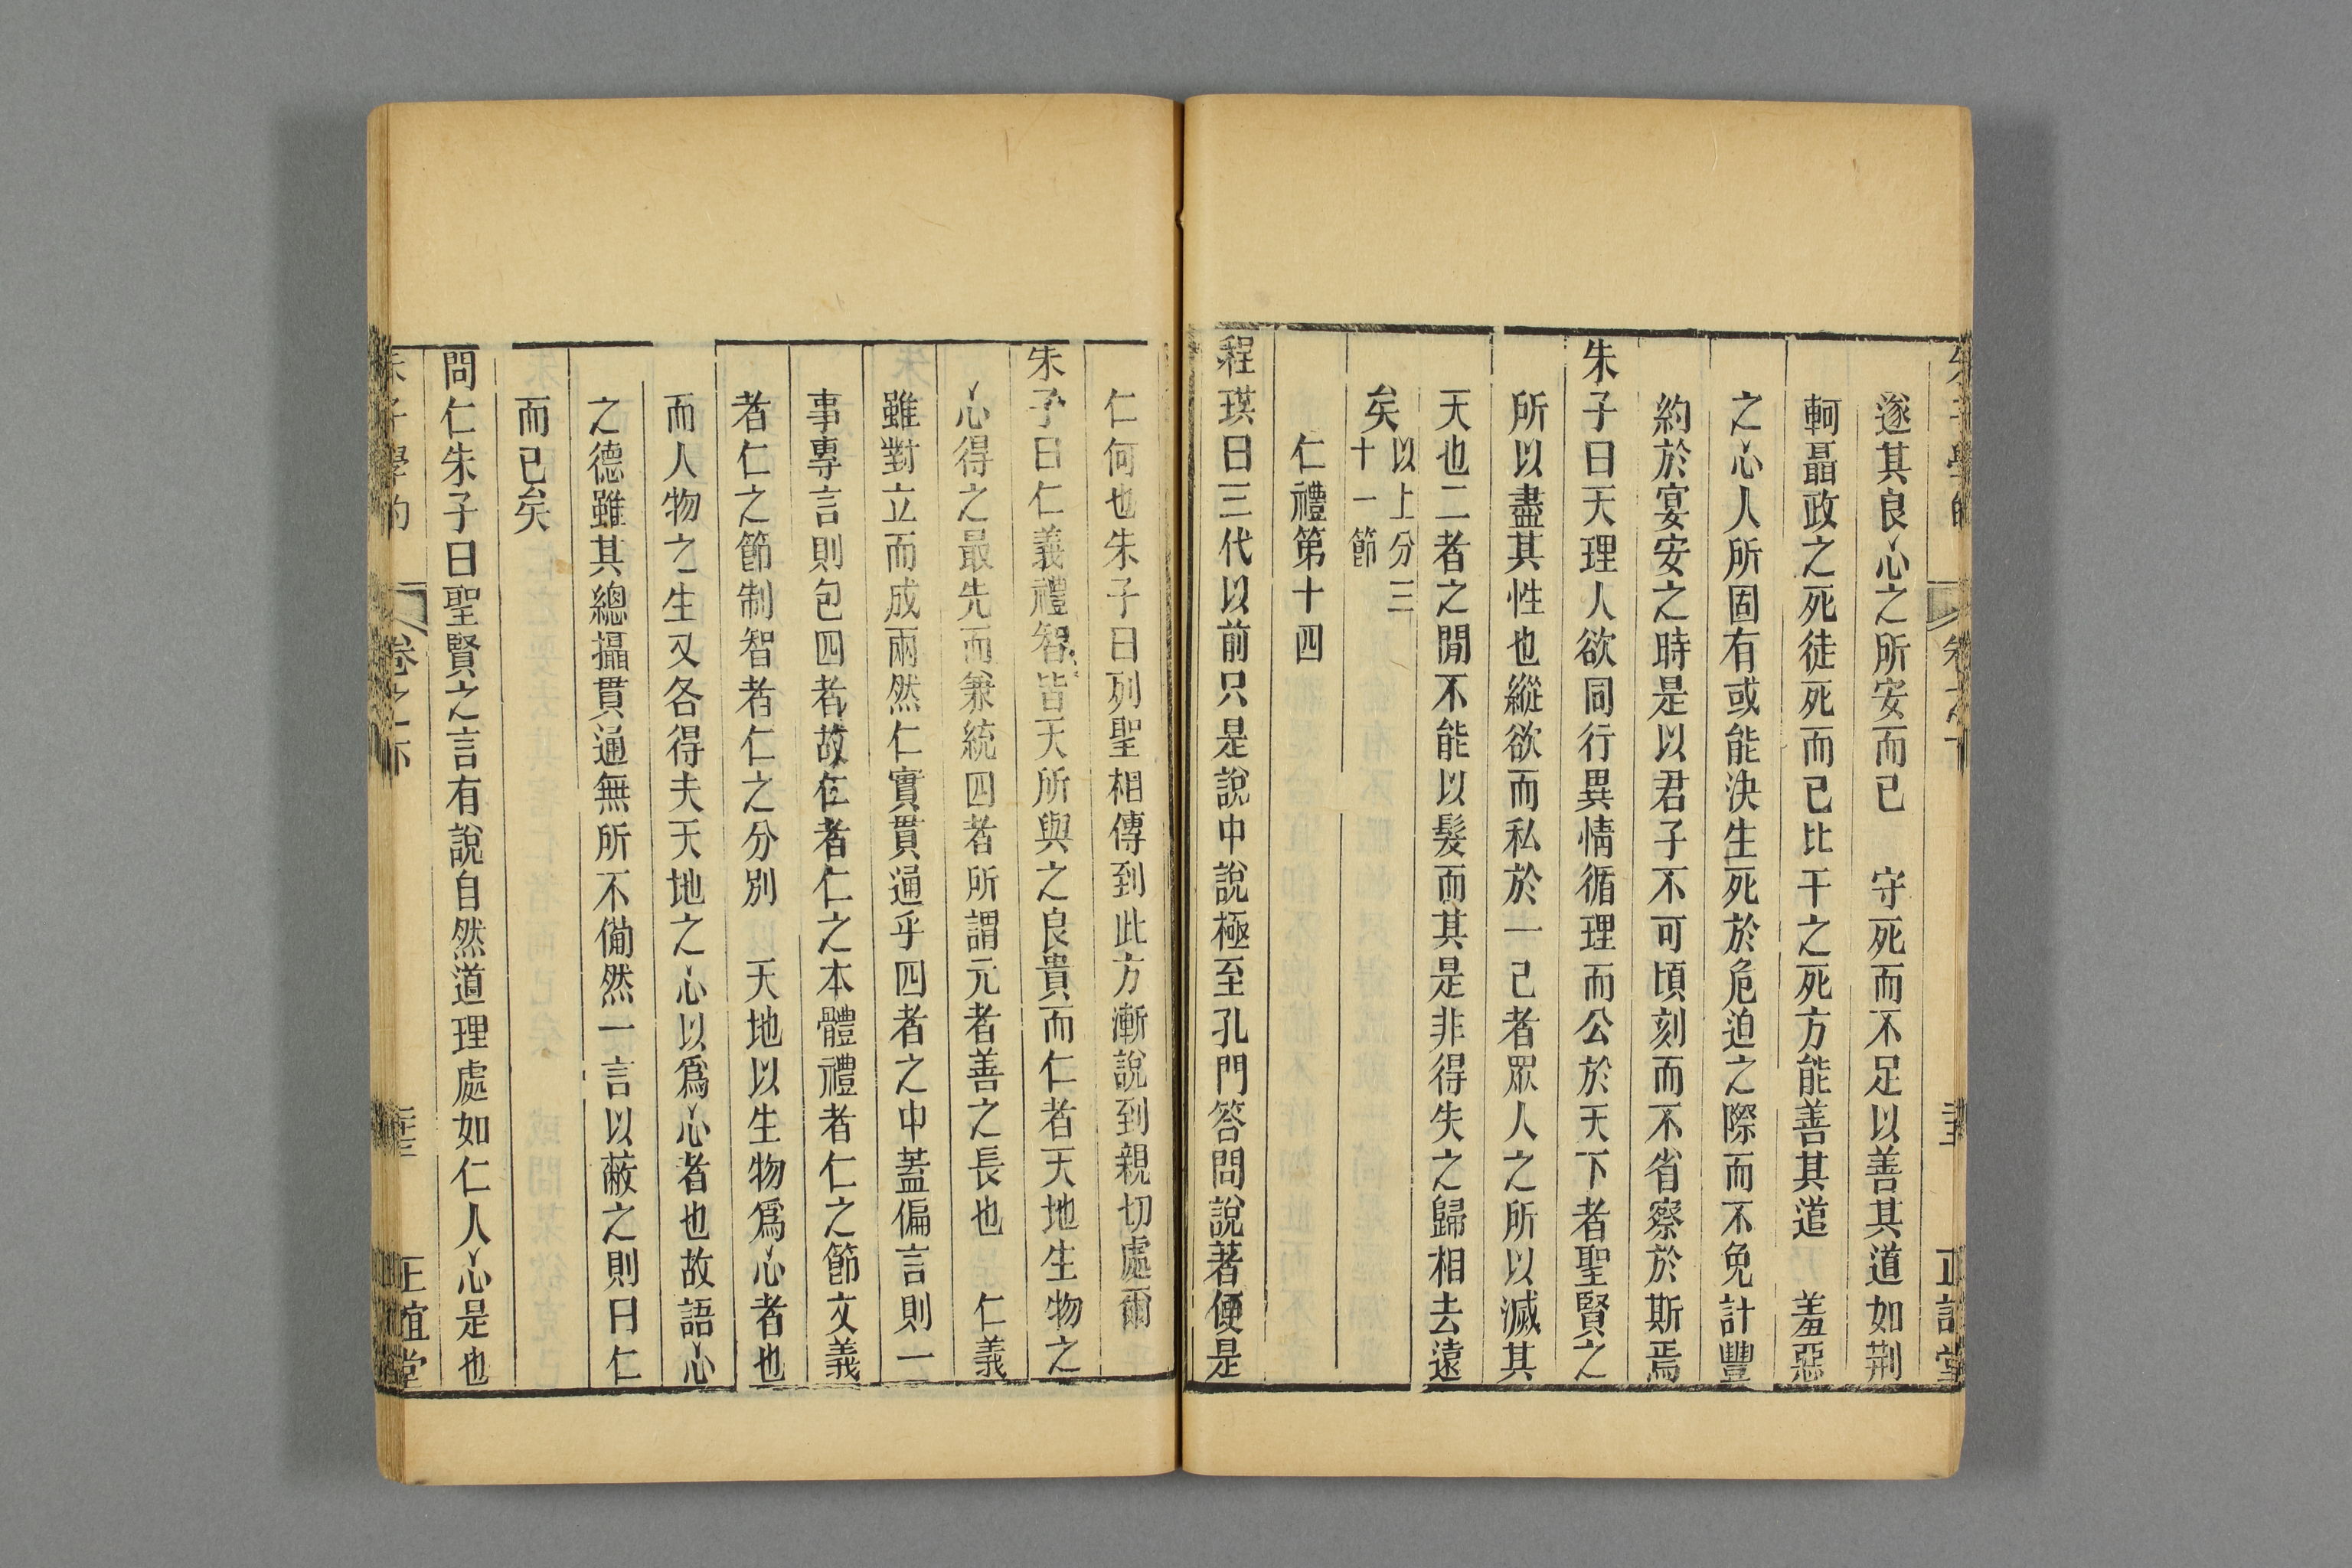 遂其良心之所安而已　守死而不足以善其道如荆
軻聶政之死徒死而已比干之死方能善其道　羞惡
之心人所固有或能決生死於危迫之際而不免計豐
約於宴安之時是以君子不可頃刻而不省察於斯焉
朱子曰天理人欲同行異情循理而公於天下者聖賢之
所以盡其性也縱欲而私於一己者眾人之所以滅其
天也二者之閒不能以髮而其是非得失之歸相去遠
矣以上分三
十一節
仁禮第十四
程珙曰三代以前只是說中說極至孔門答問說著便是
仁何也朱子曰列聖相傳到此方漸說到親切處爾
朱子曰仁義禮智皆天所與之良貴而仁者天地生物之
心得之最先而兼統四者所謂元者善之長也　仁義
雖對立而成兩然仁實貫通乎四者之中蓋偏言則一
事專言則包四者故仁者仁之本體禮者仁之節文義
者仁之節制智者仁之分別　天地以生物爲心者也
而人物之生又各得夫天地之心以爲心者也故語心
之德雖其總攝貫通無所不備然一言以蔽之則曰仁
而已矣
問仁朱子曰聖賢之言有說自然道理處如仁人心是也
朱子學的
卷之下
正誼堂